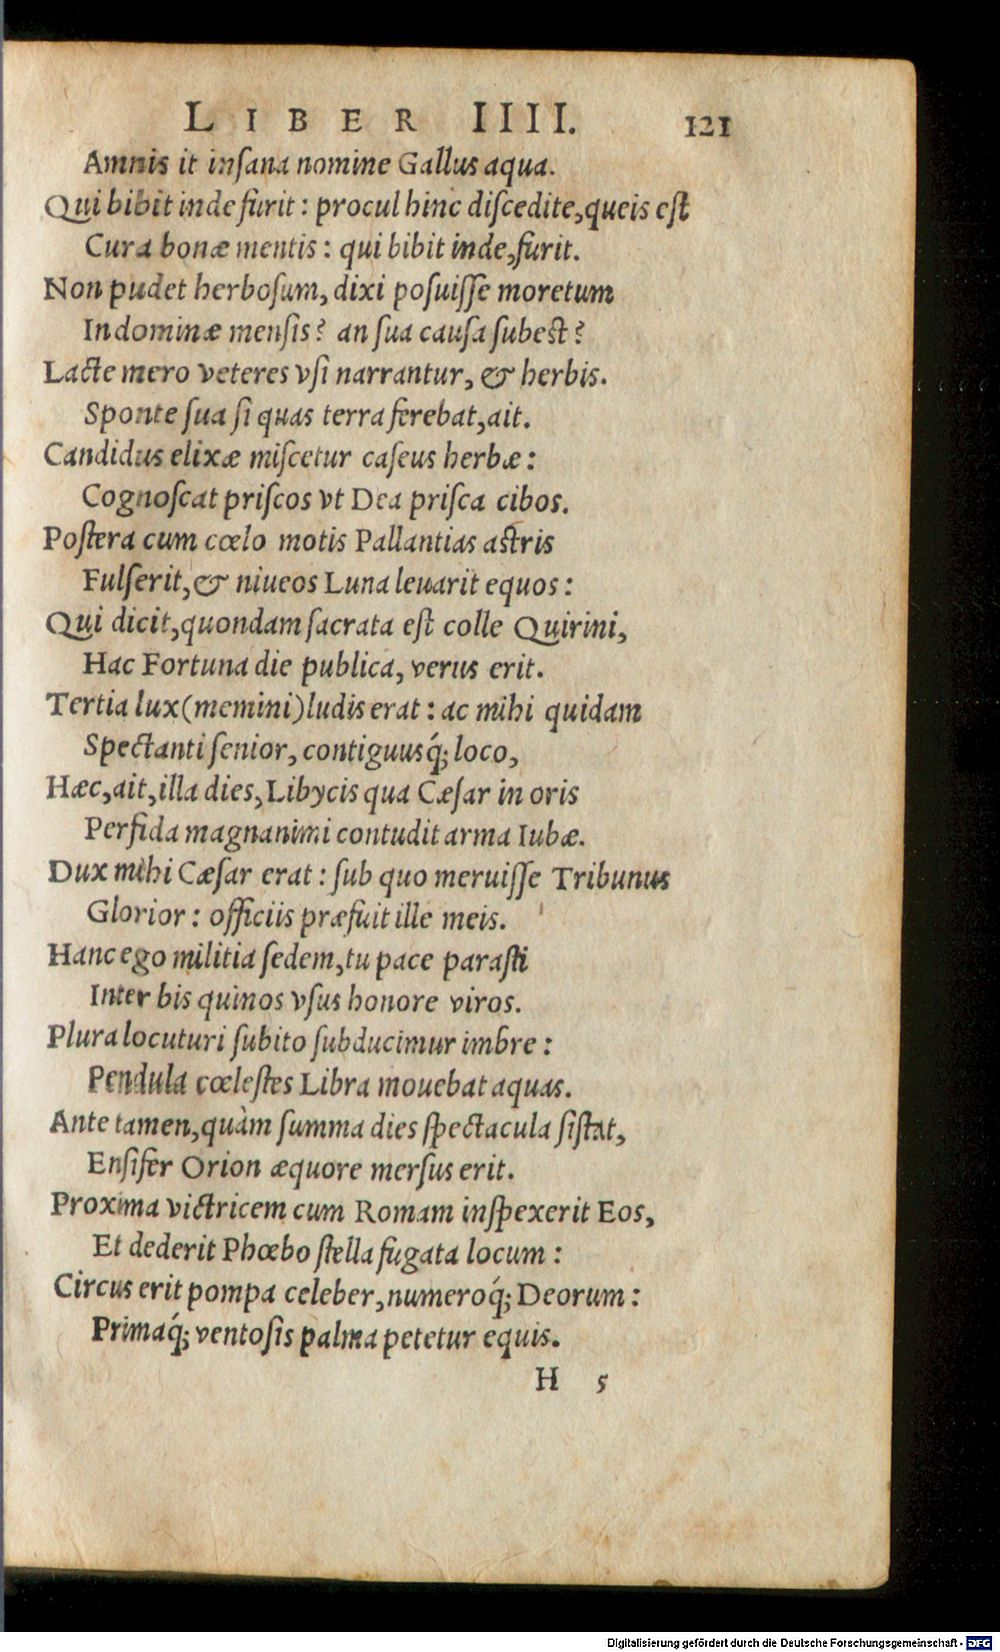 LIBER IIII. 121
Amnis it inſana nomine Gallus aqua.
Qui bibit inde furit: procul hinc diſcedite, queis eſt
Cura bonæ mentis: qui bibit inde, furit.
Non pudet herboſum, dixi poſuiſſe moretum
In dominæ menſis? an ſua cauſa ſubest?
Lacte mero veteres vſi narrantur, & herbis.
Sponte ſua ſi quas terra ferebat, ait.
Candidus elixæ miſcetur caſeus herbæ:
Cognoſcat priſcos vt Dea priſca cibos.
Poſtera cum cœlo motis Pallantias astris
Fulſerit, & niueos Luna leuarit equos:
Qui dicit, quondam ſacrata eſt colle Quirini,
Hac Fortuna die publica, verus erit.
Tertia lux (memini) ludis erat: ac mihi quidam
Spectanti ſenior, contiguusq́; loco,
Hæc, ait, illa dies, Libycis qua Cæſar in oris
Perfida magnanimi contudit arma Iubæ.
Dux mihi Cæſar erat: ſub quo meruiſſe Tribunus
Glorior: officiis præfuit ille meis.
Hanc ego militia ſedem, tu pace paraſti
Inter bis quinos vſus honore viros.
Plura locuturi ſubito ſubducimur imbre:
Pendula cœleſtes Libra mouebat aquas.
Ante tamen, quàm ſumma dies ſpectacula ſiſtat,
Enſifer Orion æquore merſus erit.
Proxima victricem cum Romam inſpexerit Eos,
Et dederit Phœbo ſtella fugata locum:
Circus erit pompa celeber, numeroq́; Deorum:
Primaq́; ventoſis palma petetur equis.
H 5
Digitalisierung gefördert durch die Deutsche Forschungsgemeinschaft - DFG